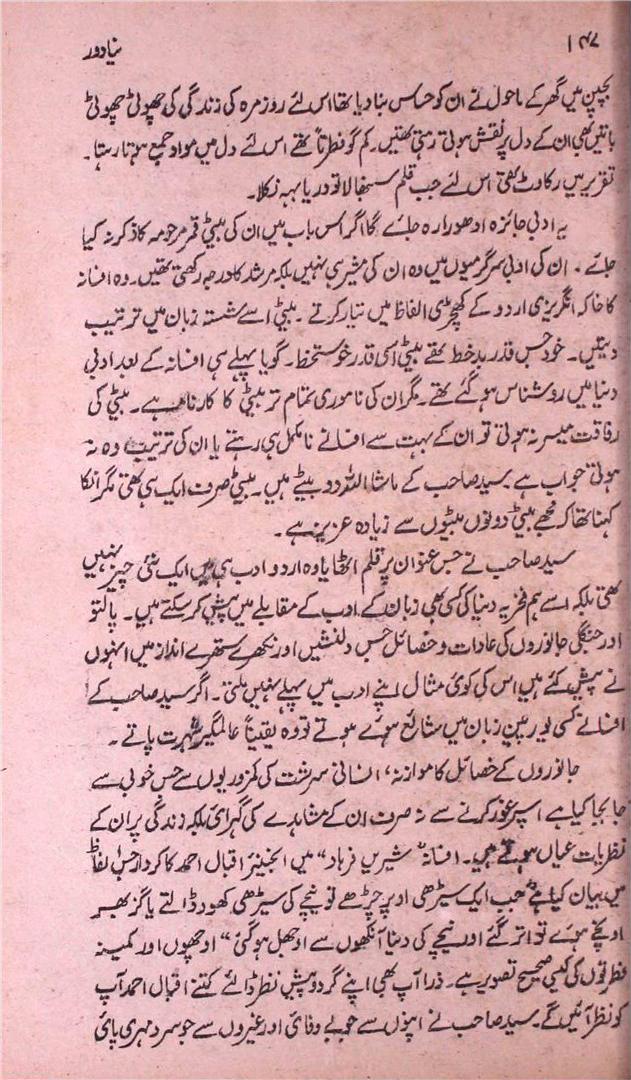 ۱۴۷ نیا دور
بچپن میں گھر کے ماحول نے ان کو حساس بنا دیا تھا اس لئے روز مرہ کی زندگی کی چھوٹی چھوٹی
باتیں بھی ان کے دل پر نقش ہوتی رہتی تھیں۔ کم گو فطرتاً تھے اس لئے دل میں مواد جمع ہوتا رہتا۔
تقریر میں رکاوٹ تھی اس لئے جب قلم سنبھالا تو دریا بہہ نکلا۔
یہ ادبی جائزہ ادھورا رہ جائے گا اگر اس باب میں ان کی بیٹی قمر مرحومہ کا ذکر نہ کیا
جائے۔ ان کی ادبی سرگرمیوں میں وہ ان کی مشیر ہی نہیں بلکہ مرشد کا درجہ رکھتی تھیں۔ وہ افسانہ
کا خاکہ انگریزی اردو کے کھچڑی الفاظ میں تیار کرتے۔ بیٹی اسے شستہ زبان میں ترتیب
دیتیں۔ خود جس قدر بد خط تھے بیٹی اسی قدر خوستخط۔ گویا پہلے ہی افسانہ کے بعد ادبی
دنیا میں روشناس ہو گئے تھے۔ مگر ان کی ناموری تمام تر بیٹی کا کارنامہ ہے۔ بیٹی کی
رفاقت میسر نہ ہوتی تو ان کے بہت سے افسانے نامکمل ہی رہتے یا ان کی ترتیب وہ نہ
ہوتی جو اب ہے۔ سید صاحب کے ماشا اللہ دو بیٹے ہیں۔ بیٹی صرف ایک ہی تھی مگر انکا
کہنا تھا کہ مجھے بیٹی دونوں بیٹوں سے زیادہ عزیز ہے۔
سید صاحب نے جس عنوان پر قلم اٹھایا وہ اردو ادب ہی میں ایک نئی چیز نہیں
تھی بلکہ اسے ہم فخریہ دنیا کی کسی بھی زبان کے ادب کے مقابلے میں پیش کر سکتے ہیں۔ پالتو
اور جنگلی جانوروں کی عادات و خصائل جس دلنشیں اور نکھرے ستھرے انداز میں انہوں
نے پیش کئے ہیں اس کی کوئی مثال اپنے ادب میں پہلے نہیں ملتی۔ اگر سید صاحب کے
افسانے کسی یورپین زبان میں شائع ہوئے ہوتے تو وہ یقیناً عالمگیر شہرت پاتے۔
جانوروں کے خصائل کا موازنہ، انسانی سرشت کی کمزوریوں سے جس خوبی سے
جا بجا کیا ہے اسپر غور کرنے سے نہ صرف ان کے مشاہدے کی گہرائی بلکہ زندگی پر ان کے
نظریات عیاں ہوتے ہیں۔ افسانہ "شیریں فرہاد" میں انجنیئر اقبال احمد کا کردار جن الفاظ
میں بیان کیا ہے "جب ایک سیڑھی اوپر چڑھے تو نیچے کی سیڑھی کھود ڈالتے یا گز بھر
اونچے ہوئے تو اتر گئے اور نیچے کی دنیا آنکھوں سے اوجھل ہو گئی" اوچھوں اور کمینہ
فطرتوں کی کیسی صحیح تصویر ہے۔ ذرا آپ بھی اپنے گرد و پیش نظر ڈالئے کتنے اقبال احمد آپ
کو نظر آئیں گے۔ سید صاحب نے اپنوں سے جو بے وفائی اور غیروں سے جو سرد مہری پائی